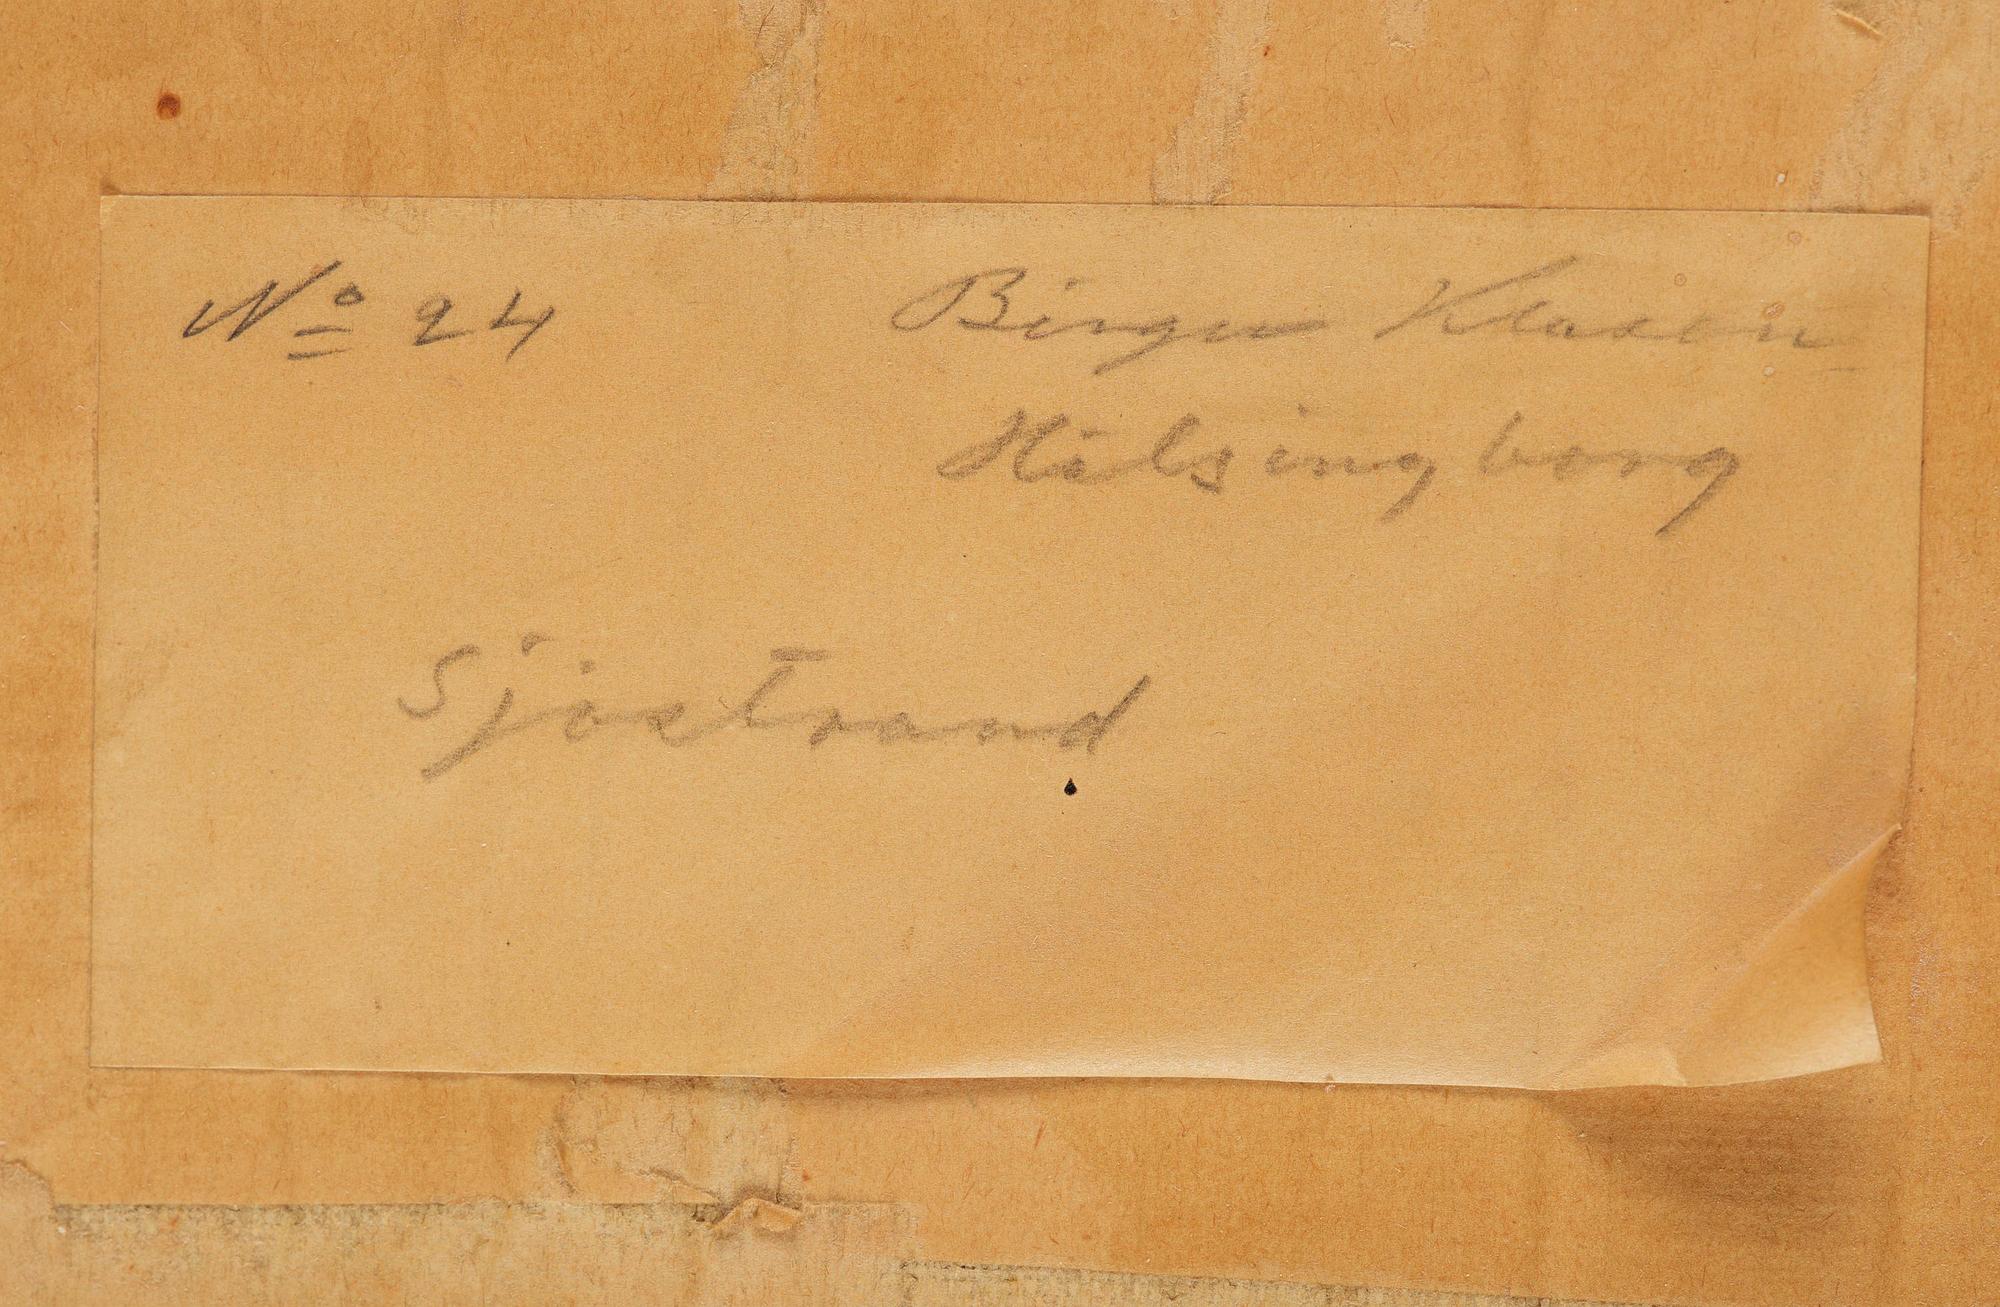 Nº 24
Birger Klasén
Hälsingborg
Sjöstrand